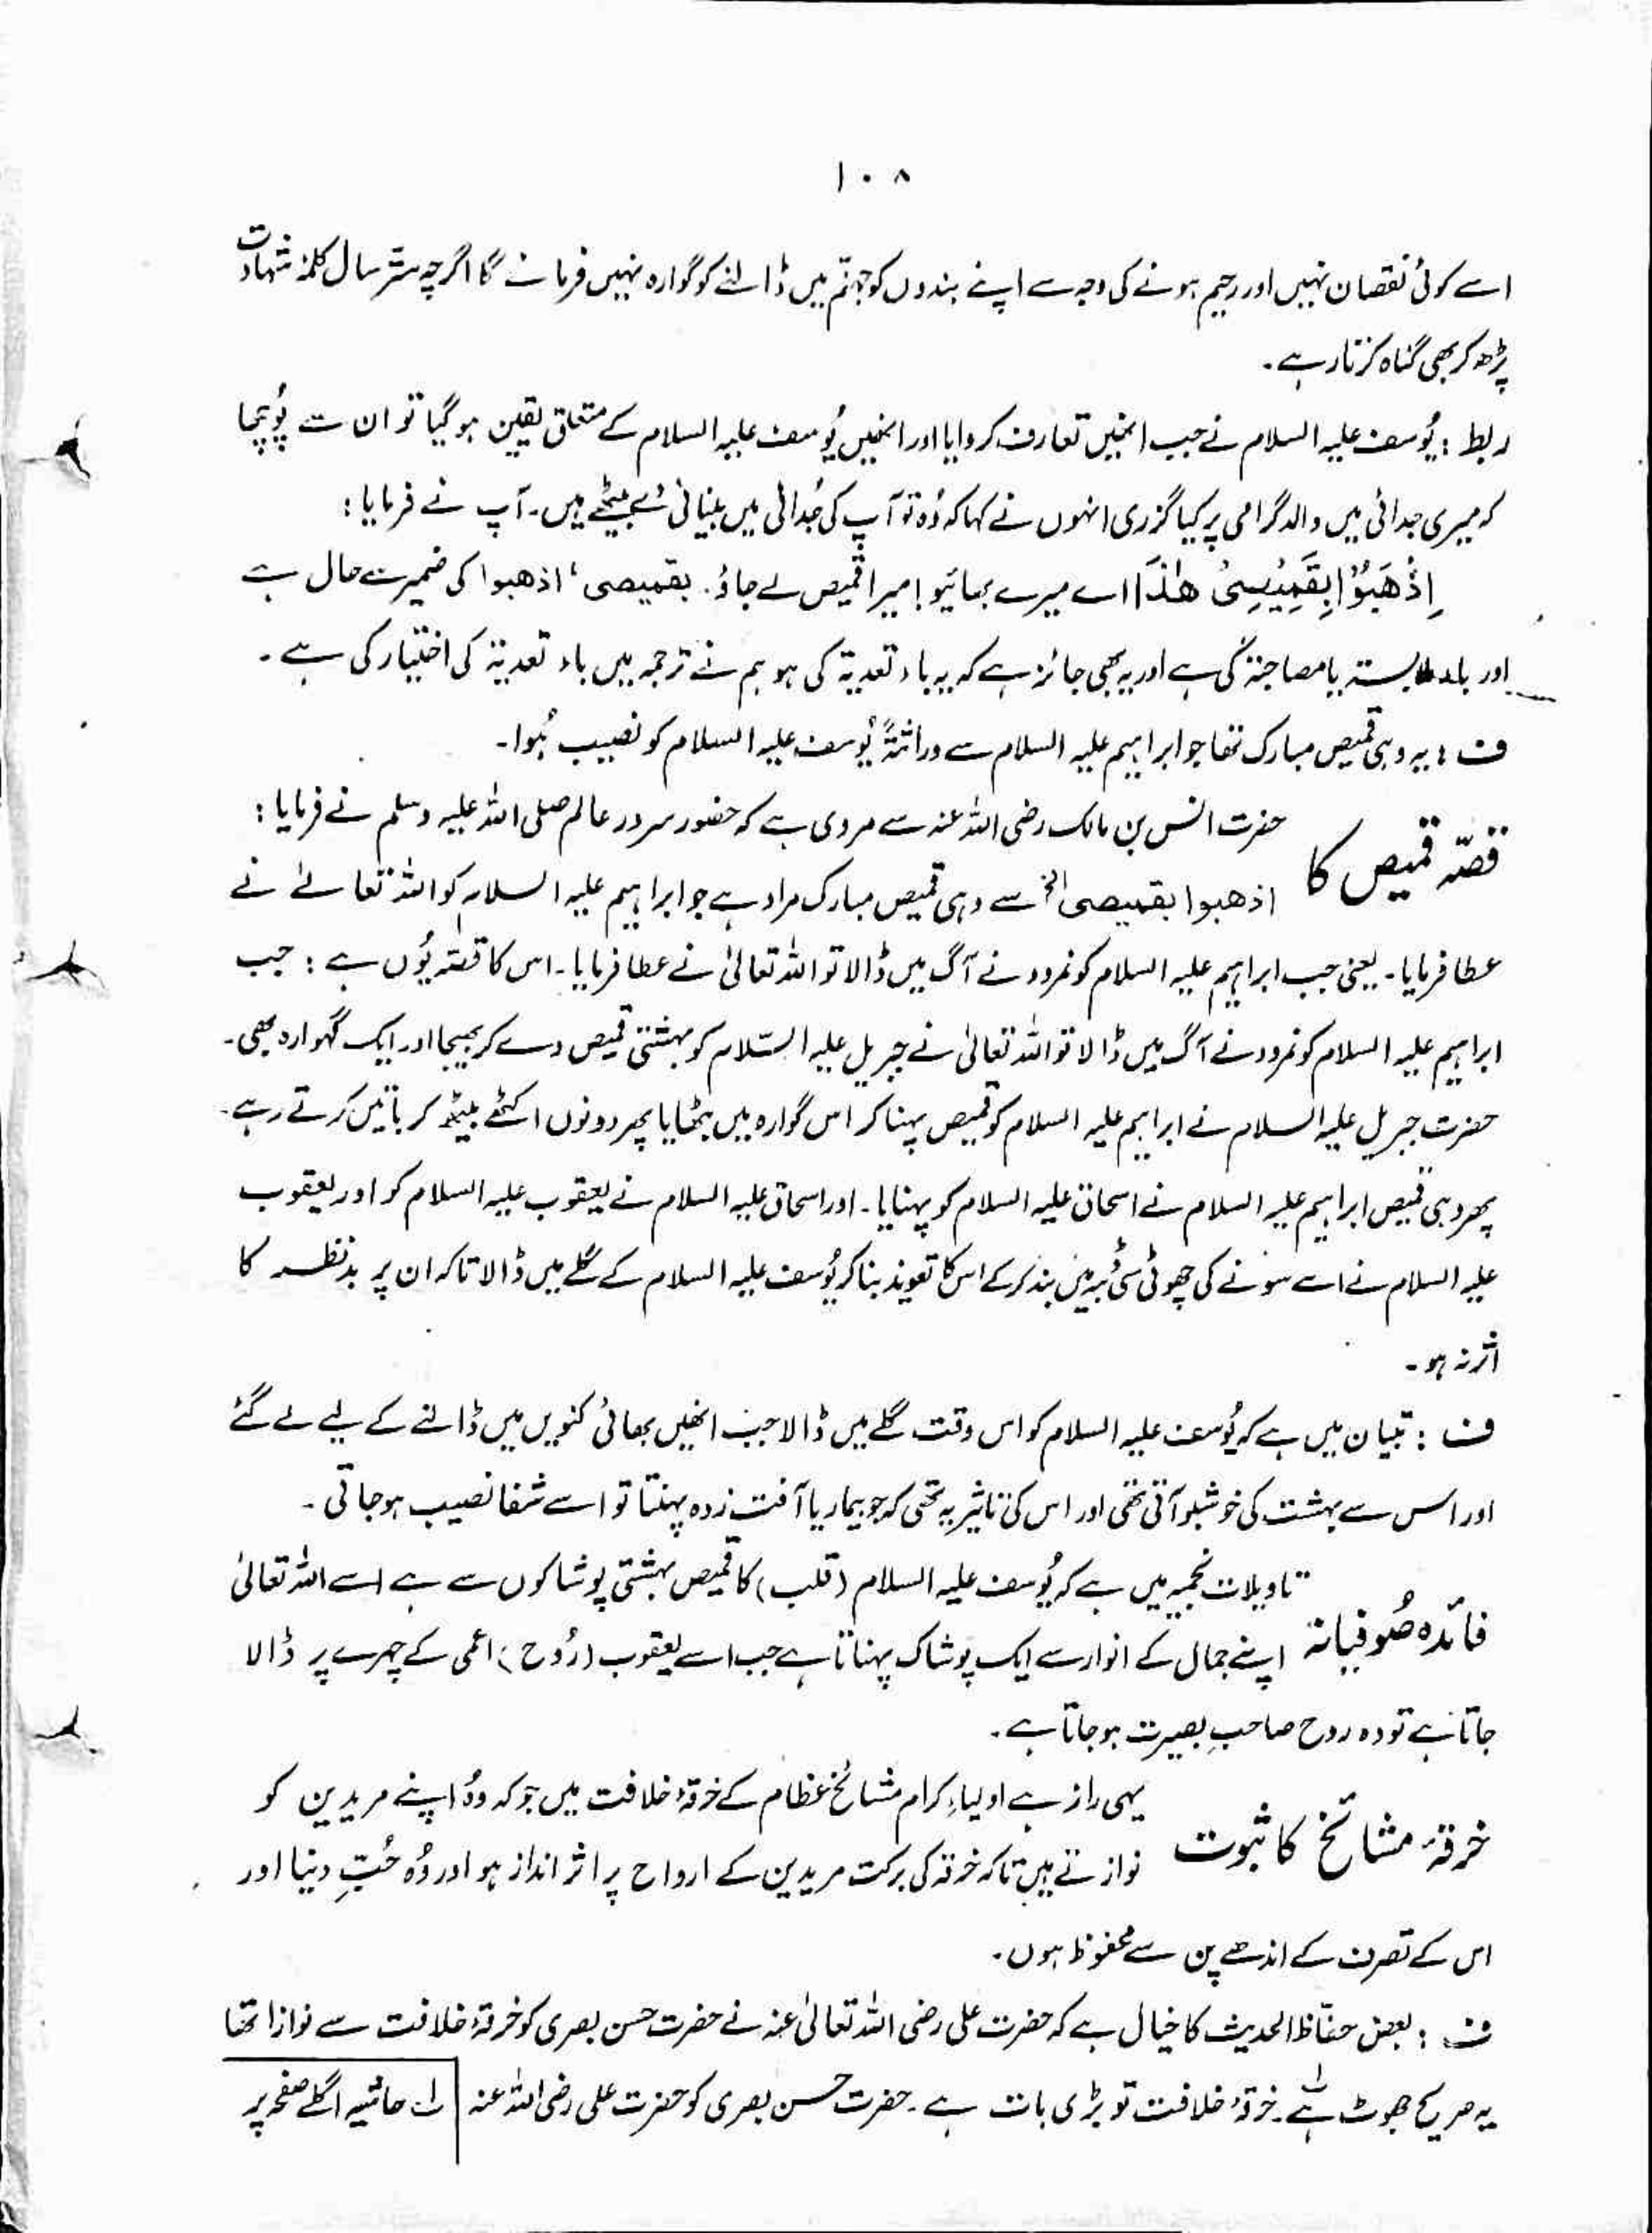 ۱۰۸
اسے کوئی نقصان نہیں اور رحیم ہونے کی وجہ سے اپنے بندوں کو جہنّم میں ڈالنے کو گوارہ نہیں فرمائے گا اگرچہ ستّر سال کلمۂ شہادت
پڑھ کر بھی گناہ کرتا رہے ۔
ربط : یُوسف علیہ السلام نے جب انھیں تعارف کروایا اور انھیں یُوسف علیہ السلام کے متعلق یقین ہو گیا تو ان سے پُوچھا
کہ میری جدائی میں والد گرامی پر کیا گزری انہوں نے کہا کہ وُہ تو آپ کی جُدائی میں بینائی دے بیٹھے ہیں ۔ آپ نے فرمایا :
اِذْهَبُوْا بِقَمِیْصِیْ هٰذَا اے میرے بھائیو! میرا قمیص لے جاؤ ۔ بقمیصی ، اذھبوا کی ضمیر سے حال ہے
اور باء ملابستہ یا مصاحبتہ کی ہے اور یہ بھی جائز ہے کہ یہ باء تعدیۃ کی ہو ہم نے ترجمہ میں باء تعدیۃ کی اختیار کی ہے ۔
ف : یہ وہی قمیص مبارک تھا جو ابراہیم علیہ السلام سے وراثتہً یُوسف علیہ السلام کو نصیب ہُوا ۔
قصّہ قمیص کا حضرت انس بن مالک رضی اللہ عنہ سے مروی ہے کہ حضور سرور عالم صلی اللہ علیہ وسلم نے فرمایا :
اذھبوا بقمیصی الخ سے وہی قمیص مبارک مراد ہے جو ابراہیم علیہ السلام کو اللہ تعالےٰ نے
عطا فرمایا ۔ یعنی جب ابراہیم علیہ السلام کو نمرود نے آگ میں ڈالا تو اللہ تعالیٰ نے عطا فرمایا ۔ اس کا قصّہ یُوں ہے : جب
ابراہیم علیہ السلام کو نمرود نے آگ میں ڈالا تو اللہ تعالیٰ نے جبریل علیہ السّلام کو بہشتی قمیص دے کر بھیجا اور ایک گہوارہ بھی ۔
حضرت جبریل علیہ السلام نے ابراہیم علیہ السلام کو قمیص پہنا کر اس گوارہ میں بٹھایا پھر دونوں اکٹھے بیٹھ کر باتیں کرتے رہے ۔
پھر وہی قمیص ابراہیم علیہ السلام نے اسحاق علیہ السلام کو پہنایا ۔ اور اسحاق علیہ السلام نے یعقوب علیہ السلام کو اور یعقوب
علیہ السلام نے اسے سونے کی چھوٹی سی ڈبیہ میں بند کر کے اس کا تعویذ بنا کر یُوسف علیہ السلام کے گلے میں ڈالا تاکہ ان پر بدنظر کا
اثر نہ ہو ۔
ف : تبیان میں ہے کہ یُوسف علیہ السلام کو اس وقت گلے میں ڈالا جب انھیں بھائی کنویں میں ڈالنے کے لیے لے گئے
اور اس سے بہشت کی خوشبو آتی تھی اور اس کی تاثیر یہ تھی کہ جو بیمار یا آفت زدہ پہنتا تو اسے شفا نصیب ہو جاتی ۔
فائدہ صُوفیانہ تاویلات نجمیہ میں ہے کہ یُوسف علیہ السلام (قلب) کا قمیص بہشتی پوشاکوں سے ہے اسے اللہ تعالیٰ
اپنے جمال کے انوار سے ایک پوشاک پہناتا ہے جب اسے یعقوب (رُوح) اعمی کے چہرے پر ڈالا
جاتا ہے تو وہ روح صاحبِ بصیرت ہو جاتا ہے ۔
خرقۂ مشائخ کا ثبوت یہی راز ہے اولیاءِ کرام مشائخ عظام کے خرقۂ خلافت میں جو کہ وُہ اپنے مریدین کو
نوازتے ہیں تاکہ خرقہ کی برکت مریدین کے ارواح پر اثر انداز ہو اور وُہ حُبِّ دنیا اور
اس کے تصرف کے اندھے پن سے محفوظ ہوں ۔
ف : بعض حفّاظ الحدیث کا خیال ہے کہ حضرت علی رضی اللہ تعالیٰ عنہ نے حضرت حسن بصری کو خرقۂ خلافت سے نوازا تھا
یہ صریح جھوٹ ہے ۱؎ ۔ خرقۂ خلافت تو بڑی بات ہے ۔ حضرت حسن بصری کو حضرت علی رضی اللہ عنہ
۱؎ حاشیہ اگلے صفحہ پر